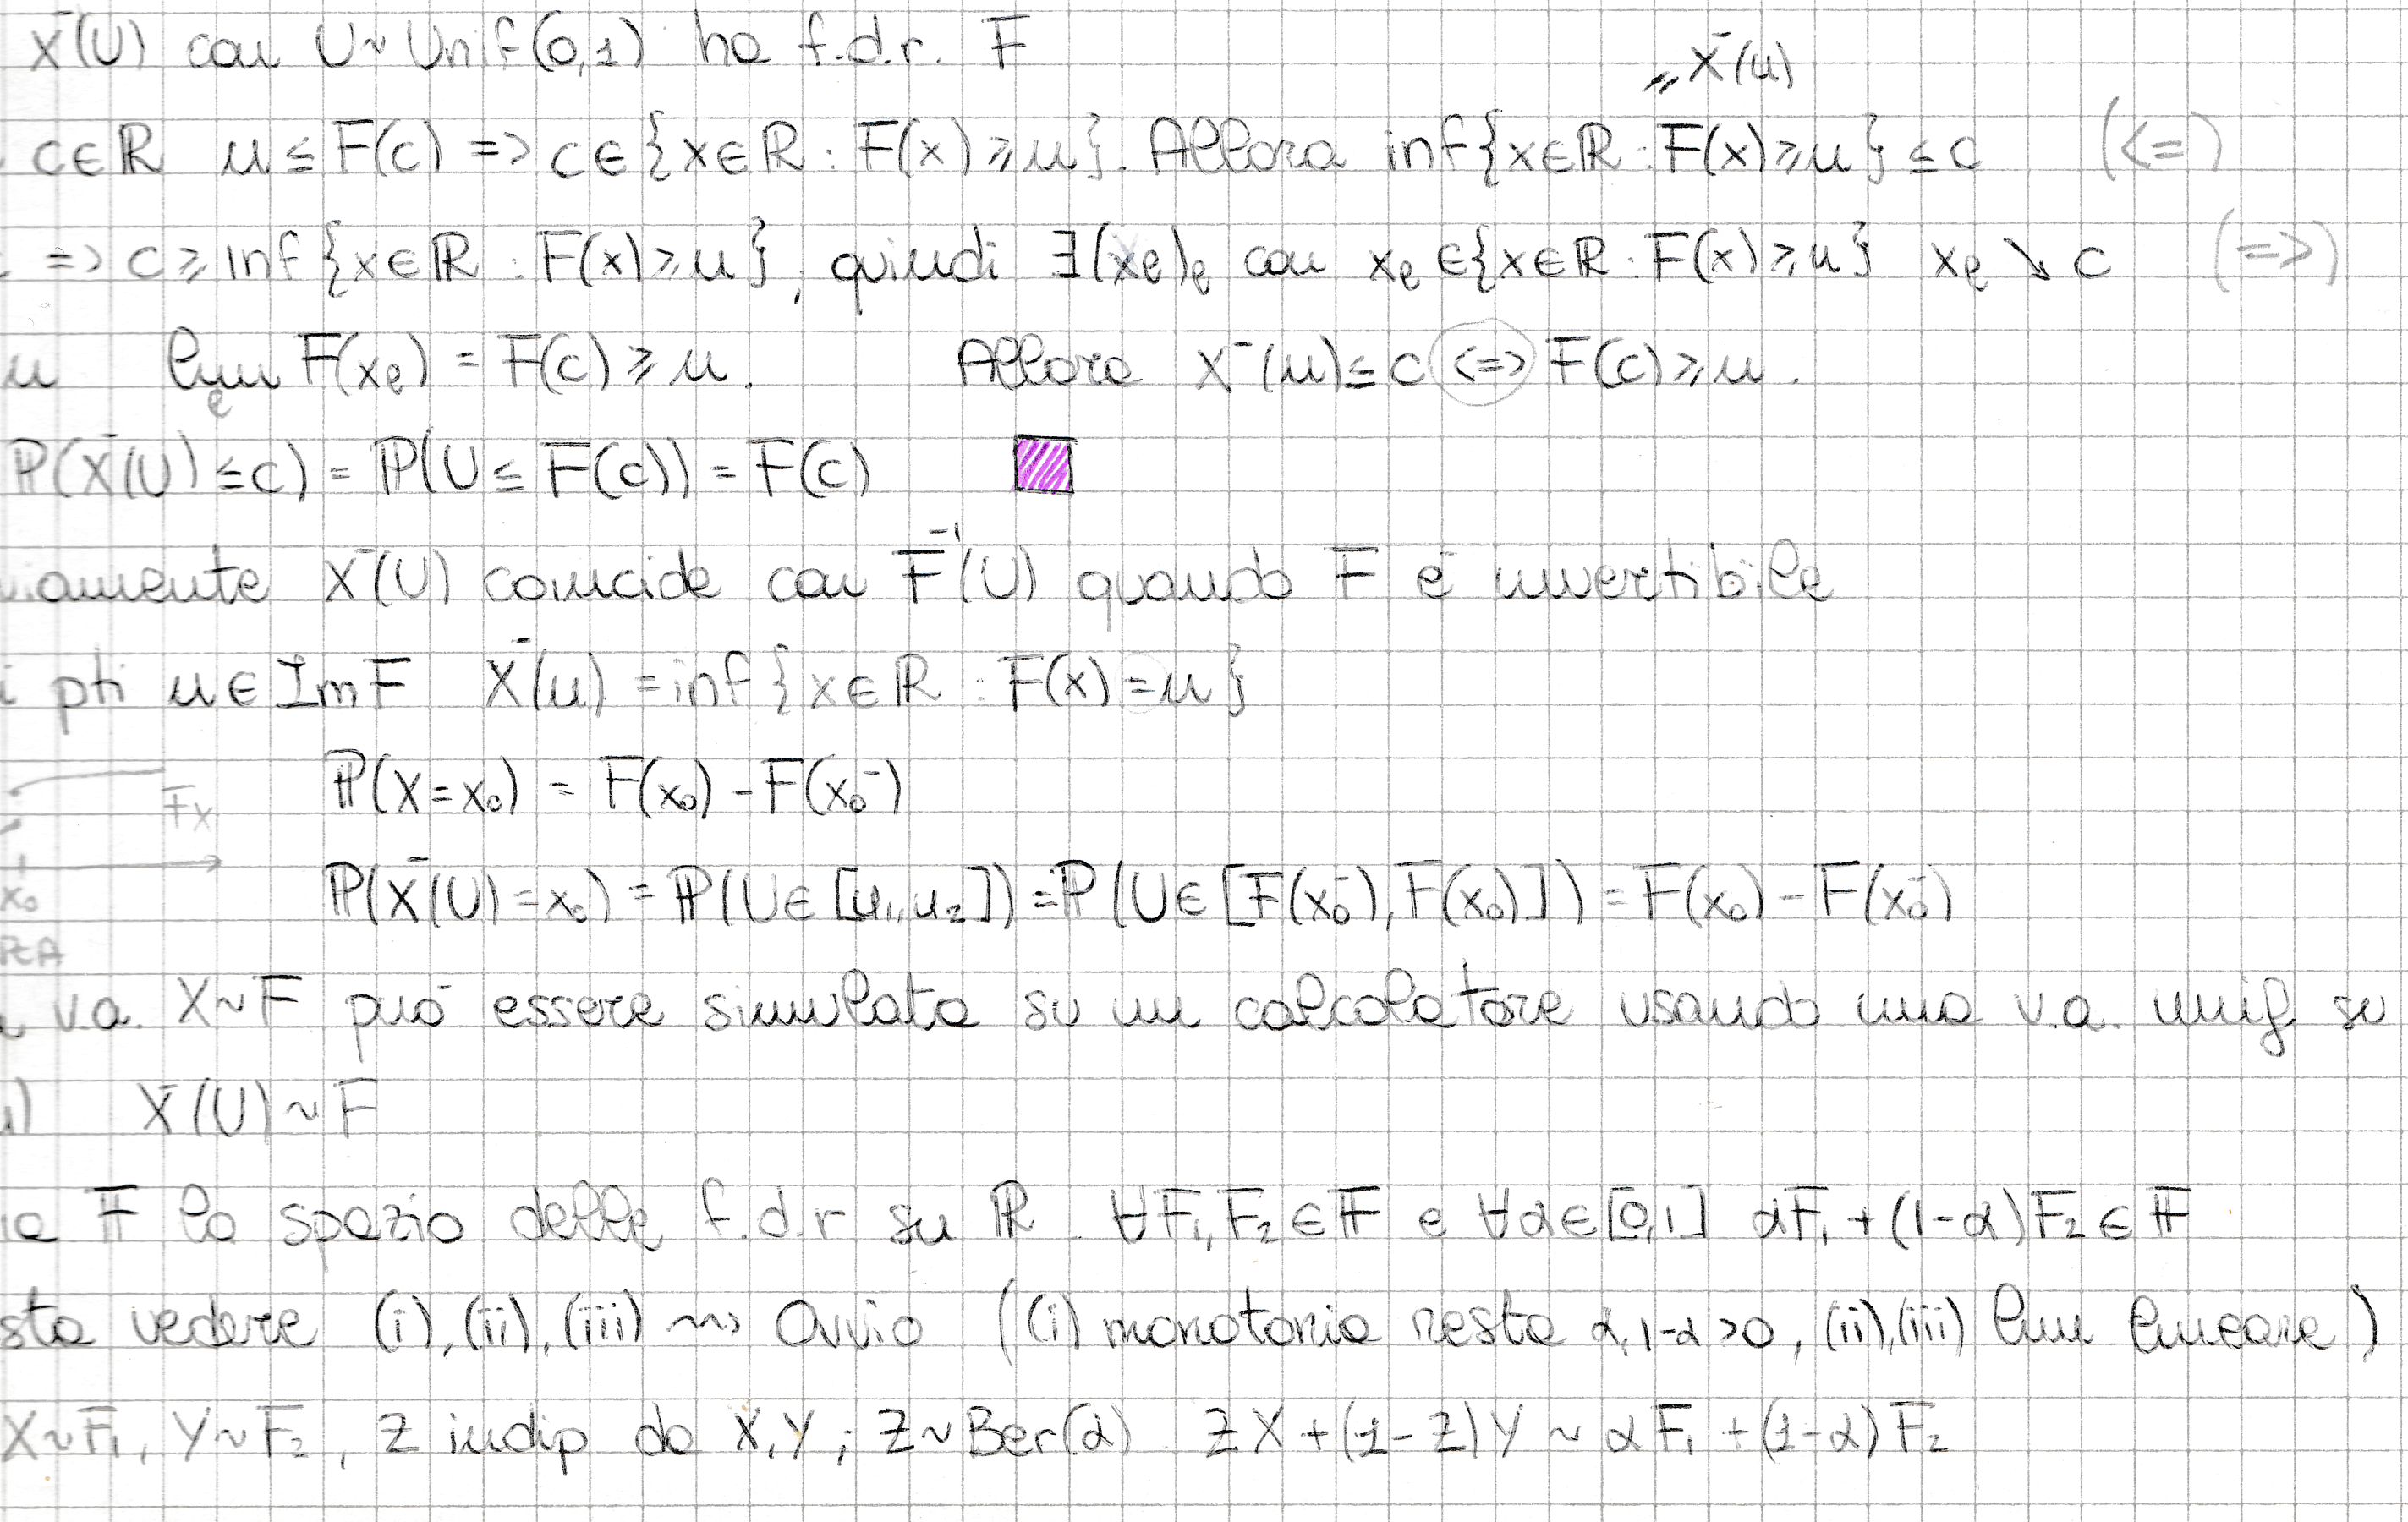 X⁻(U) con U~Unif(0,1) ha f.d.r. F
= X⁻(u)
c∈ℝ u ≤ F(c) => c∈{x∈ℝ : F(x)⩾u}. Allora inf{x∈ℝ : F(x)⩾u} ≤ c (<=)
=> c ⩾ inf{x∈ℝ : F(x)⩾u}, quindi ∃(xₑ)ₑ con xₑ ∈{x∈ℝ : F(x)⩾u} xₑ ↘ c (=>)
u limₑ F(xₑ) = F(c) ⩾ u. Allora X⁻(u) ≤ c <=> F(c) ⩾ u.
ℙ(X⁻(U) ≤ c) = ℙ(U ≤ F(c)) = F(c)
viamente X⁻(U) coincide con F⁻¹(U) quando F è invertibile
i pti u ∈ Im F X⁻(u) = inf{x∈ℝ : F(x) = u}
ℙ(X = x₀) = F(x₀) - F(x₀⁻)
Fx
x₀
ℙ(X⁻(U) = x₀) = ℙ(U ∈ [u₁, u₂]) = ℙ(U ∈ [F(x₀⁻), F(x₀)]) = F(x₀) - F(x₀⁻)
v.a. X~F può essere simulata su un calcolatore usando una v.a. unif su
X⁻(U) ~ F
ia 𝔽 lo spazio delle f.d.r su ℝ. ∀F₁, F₂ ∈ 𝔽 e ∀α∈[0,1] αF₁ + (1-α)F₂ ∈ 𝔽
sta vedere (i), (ii), (iii) ⇝ Ovvio ((i) monotonia resta α, 1-α >0, (ii), (iii) lim lineare)
X~F₁, Y~F₂, Z indip da X,Y ; Z~Ber(α). ZX + (1-Z)Y ~ αF₁ + (1-α)F₂